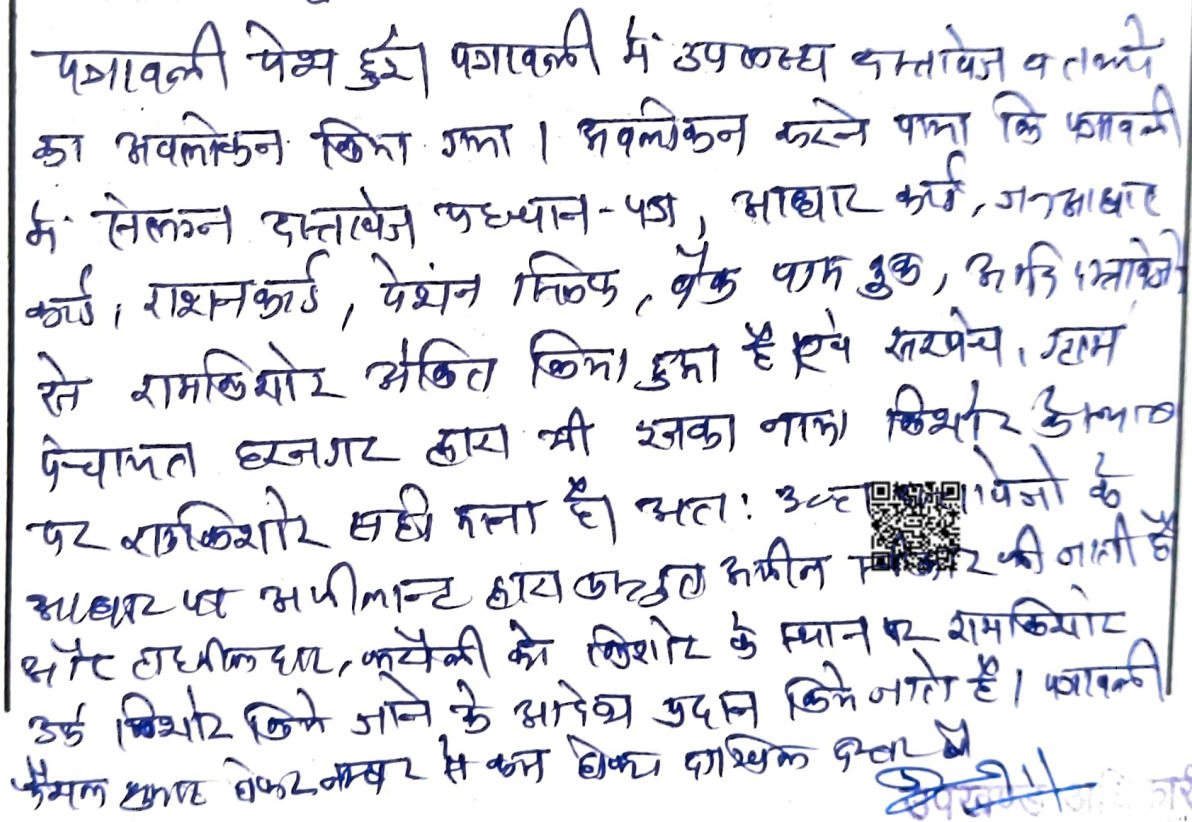 पत्रावली पेश हुई। पत्रावली में उपलब्ध दस्तावेज व तथ्यों
का अवलोकन किया गया। अवलोकन करने पाया कि पत्रावली
में संलग्न दस्तावेज पहचान-पत्र, आधार कार्ड, जनआधार
कार्ड, राशनकार्ड, पेशंन स्लिप, बैंक पास बुक, आदि दस्तावेजो
से रामकिशोर अंकित किया हुआ है एवं सरपंच, ग्राम
पंचायत हरनगर द्वारा भी इनका नाम किशोर के स्थान
पर रामकिशोर सही माना है। अतः उक्त के
आधार पर अपीलान्ट द्वारा प्रस्तुत अपील की जाती है
और तहसीलदार, करौली को किशोर के स्थान पर रामकिशोर
उर्फ किशोर किये जाने के आदेश प्रदान किये जाते है। पत्रावली
फैसल शुमार होकर नम्बर से कम होकर दाखिल दफ्तर हो